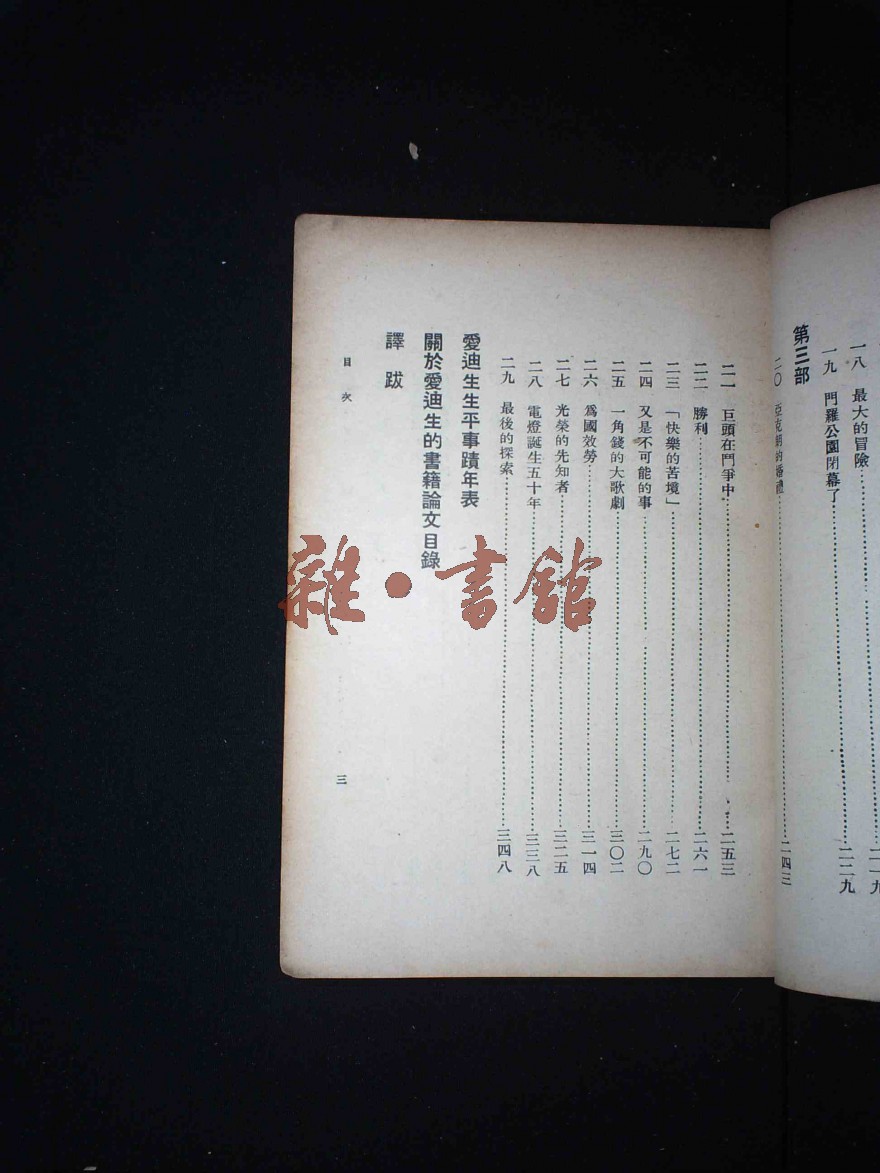 一八　最大的冒險……二一九
一九　門羅公園閉幕了……二二九
第三部
二〇　亞克朗的婚禮……二四三
二一　巨頭在鬥爭中……二五三
二二　勝利……二六一
二三　「快樂的苦境」……二七二
二四　又是不可能的事……二九〇
二五　一角錢的大歌劇……三〇二
二六　爲國效勞……三一四
二七　光榮的先知者……三二五
二八　電燈誕生五十年……三三八
二九　最後的探索……三四八
愛迪生生平事蹟年表
關於愛迪生的書籍論文目錄
譯跋
目次
三
雜·書館